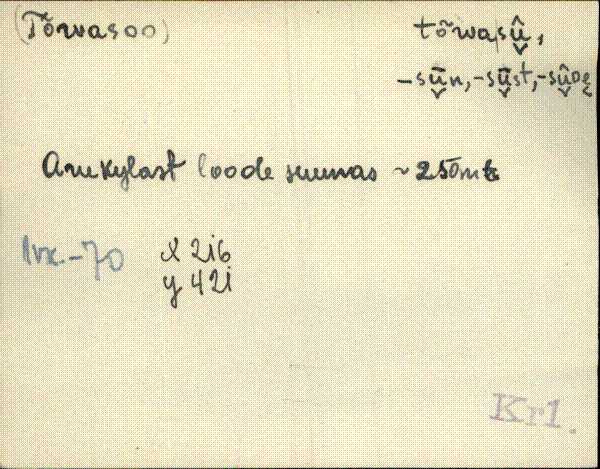 (Tõrvasoo)
tõrvasū̬̂,
-sū̬n, -sū̬st, -sū̬̂ₒę
Arukylast loode suunas ~250mtr
X 216
y 421
Kr1.